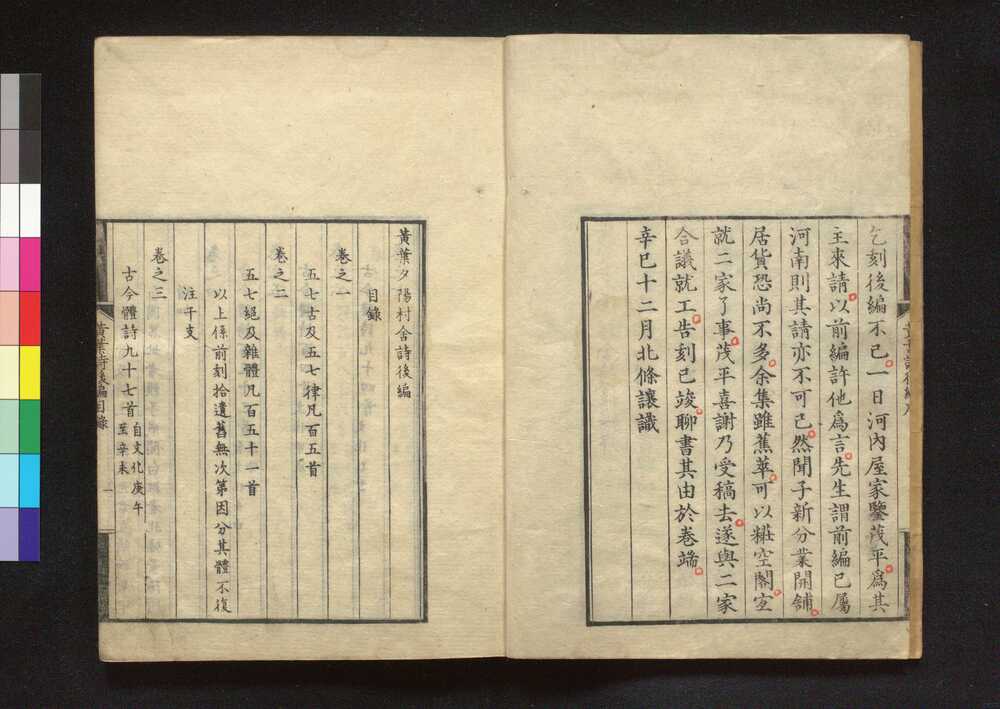 乞刻後編不已一日河内屋家鑒茂平爲其
主來請以前編許他爲言先生謂前編已屬
河南則其請亦不可已然聞子新分業開舖
居貨恐尚不多余集雖蕉萃可以粧空閣宜
就二家了事茂平喜謝乃受稿去遂與二家
合議就工告刻已竣聊書其由於卷端
辛巳十二月北條讓識
黃葉夕陽村舍詩後編
目錄
卷之一
五七古及五七律凡百五首
卷之二
五七絕及雜體凡百五十一首
以上係前刻拾遺舊無次第因分其體不復
注干支
卷之三
古今體詩九十七首自文化庚午
至辛未
黃葉詩後編目錄
一